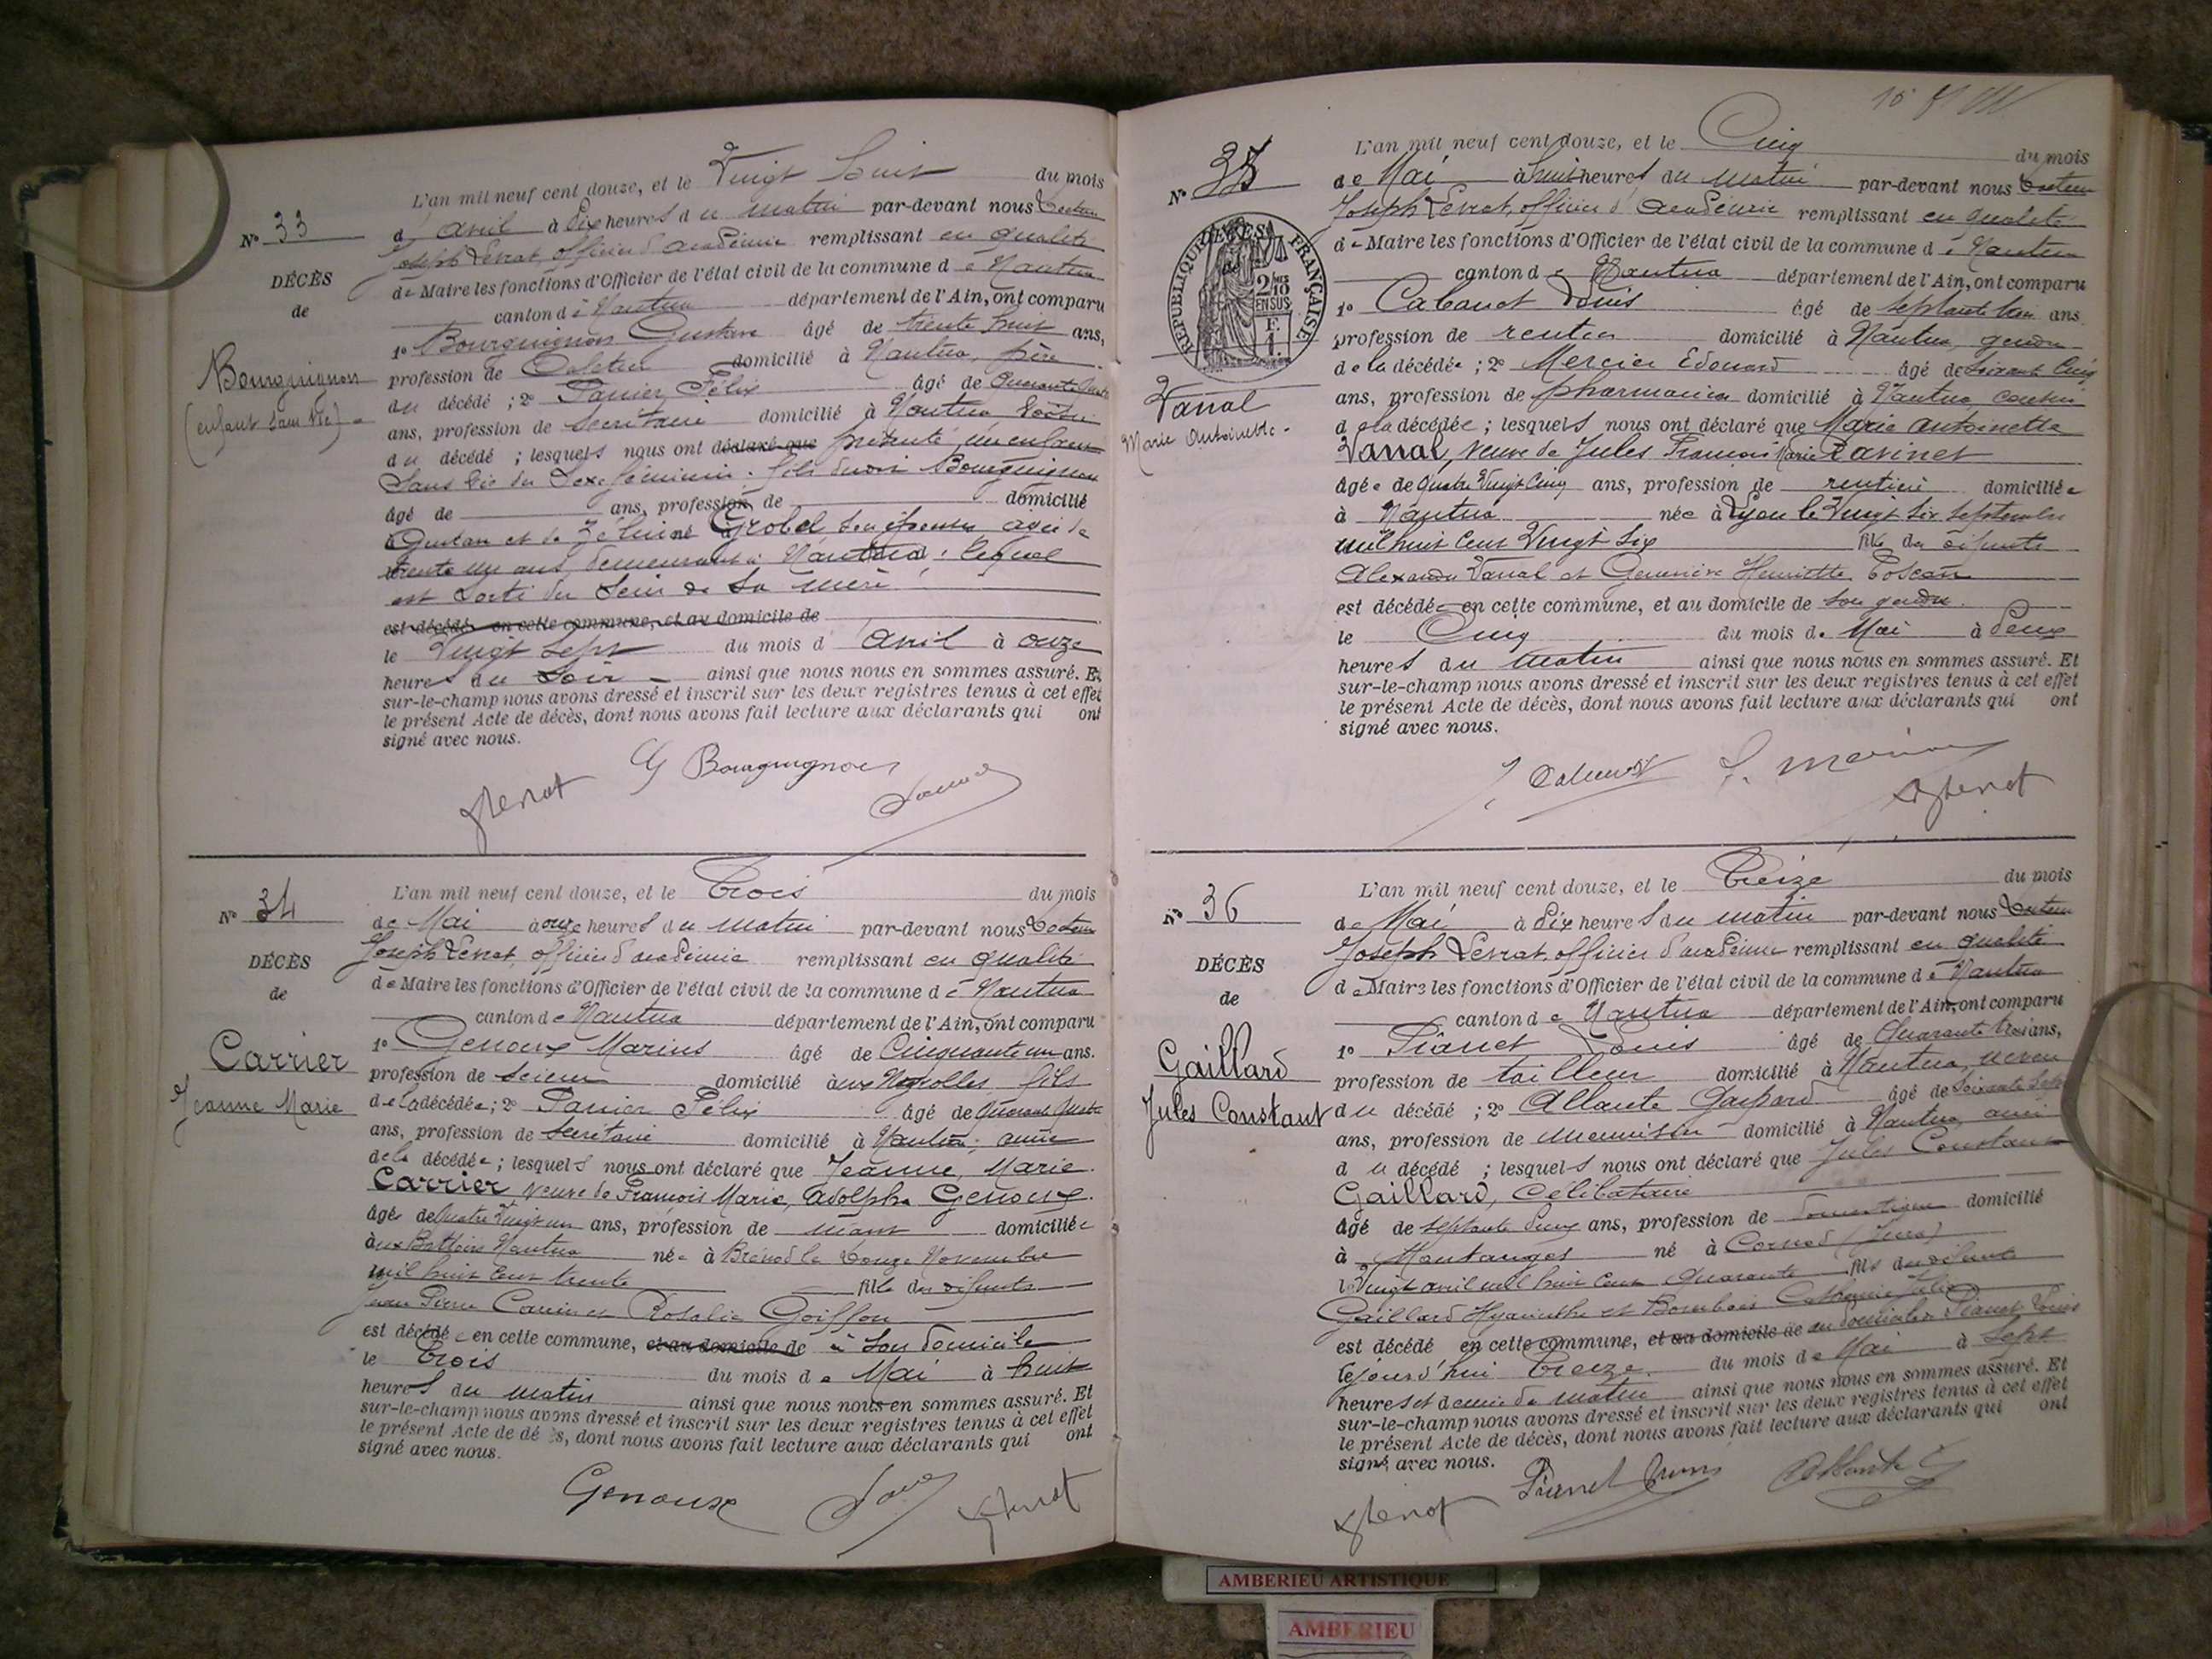 L'an mil neuf cent douze, et le Vingt huit du mois
d'avril à Dix heures du matin par-devant nous Docteur
Nº 33
Joseph Levrat, officier d'académie remplissant en qualité
DÉCÈS
de Maire les fonctions d'Officier de l'état civil de la commune de Nantua
de
canton de Nantua département de l'Ain, ont comparu
1º Bourguignon Gustave âgé de trente huit ans,
Bourguignon
profession de domicilié à Nantua, père
(enfant sans vie)
du décédé ; 2º Panier Félix âgé de quarante quatre
ans, profession de Secrétaire domicilié à Nantua, voisin
du décédé ; lesquels nous ont déclaré que présenté un enfant
Sans vie du Sexe féminin, fils de Bourguignon
âgé de ans, profession de domicilié
Gustave et de Zéline né à Grobel son épouse, âgée de
trente un ans, demeurant à Nantua, lequel
est sorti du Sein de Sa mère
est décédé en cette commune, et au domicile de
le Vingt Sept du mois d'avril à onze
heures du Soir ainsi que nous nous en sommes assuré. Et
sur-le-champ nous avons dressé et inscrit sur les deux registres tenus à cet effet
le présent Acte de décès, dont nous avons fait lecture aux déclarants qui ont
signé avec nous.
G Bourguignon
JLevrat
L'an mil neuf cent douze, et le Trois du mois
Nº 34
de Mai à onze heures du matin par-devant nous Docteur
Joseph Levrat, officier d'académie remplissant en qualité
DÉCÈS
de Maire les fonctions d'Officier de l'état civil de la commune de Nantua
de
canton de Nantua département de l'Ain, ont comparu
1º Genoux Marius âgé de Cinquante un ans.
Carrier
profession de Scieur domicilié aux Neyrolles, fils
Jeanne Marie
de la décédée ; 2º Panier Félix âgé de Quarante Quatre
ans, profession de Secrétaire domicilié à Nantua, amie
de la décédée ; lesquels nous ont déclaré que Jeanne, Marie
Carrier, veuve de François Marie, Adolphe Genoux
âgée de Quatre Vingt un ans, profession de néant domiciliée
aux Battoirs Nantua née à Brénod le Douze Novembre
mil huit Cent trente fille des défunts
Jean Pierre Carrier et Rosalie Goiffon
est décédée en cette commune, et au domicile de à Son domicile
le Trois du mois de Mai à huit
heures du matin ainsi que nous nous en sommes assuré. Et
sur-le-champ nous avons dressé et inscrit sur les deux registres tenus à cet effet
le présent Acte de décès, dont nous avons fait lecture aux déclarants qui ont
signé avec nous.
Genoux
JLevrat
L'an mil neuf cent douze, et le Cinq du mois
Nº 35
de Mai à huit heures du matin par-devant nous Docteur
Joseph Levrat, officier d'académie remplissant en qualité
de Maire les fonctions d'Officier de l'état civil de la commune de Nantua
RÉPUBLIQUE FRANÇAISE
2/10 EN SUS
F. 1.
canton de Nantua département de l'Ain, ont comparu
1º Cabanet Louis âgé de septante trois ans
profession de rentier domicilié à Nantua, gendre
de la décédée ; 2º Mercier Edouard âgé de Soixante Cinq
Vanal
ans, profession de pharmacien domicilié à Nantua, cousin
Marie Antoinette
de la décédée ; lesquels nous ont déclaré que Marie Antoinette
Vanal, veuve de Jules François Marie Ravinet
âgée de Quatre Vingt Cinq ans, profession de rentière domiciliée
à Nantua née à Lyon le Vingt Six Septembre
mil huit Cent Vingt Six fille des défunts
Alexandre Vanal et Geneviève Henriette Toscan
est décédée en cette commune, et au domicile de Son gendre
le Cinq du mois de Mai à Deux
heures du matin ainsi que nous nous en sommes assuré. Et
sur-le-champ nous avons dressé et inscrit sur les deux registres tenus à cet effet
le présent Acte de décès, dont nous avons fait lecture aux déclarants qui ont
signé avec nous.
JLevrat
L'an mil neuf cent douze, et le Treize du mois
Nº 36
de Mai à Dix heures du matin par-devant nous Docteur
Joseph Levrat, officier d'académie remplissant en qualité
DÉCÈS
de Maire les fonctions d'Officier de l'état civil de la commune de Nantua
de
canton de Nantua département de l'Ain, ont comparu
1º Pianet Louis âgé de Quarante trois ans,
Gaillard
profession de tailleur domicilié à Nantua, neveu
Jules Constant
du décédé ; 2º Allante Gaspard âgé de Soixante Sept
ans, profession de menuisier domicilié à Nantua, ami
du décédé ; lesquels nous ont déclaré que Jules Constant
Gaillard, Célibataire
âgé de septante Deux ans, profession de domestique domicilié
à Montanges né à Cornod (Jura)
le Vingt avril mil huit Cent Quarante fils des défunts
Gaillard Hyacinthe et Bourbois Catherine Julie
est décédé en cette commune, et au domicile de au domicile de Pianet Louis
le jourd'hui Treize du mois de Mai à Sept
heures et demie du matin ainsi que nous nous en sommes assuré. Et
sur-le-champ nous avons dressé et inscrit sur les deux registres tenus à cet effet
le présent Acte de décès, dont nous avons fait lecture aux déclarants qui ont
signé avec nous.
Pianet Louis
Allante G
JLevrat
AMBERIEU ARTISTIQUE
AMBERIEU